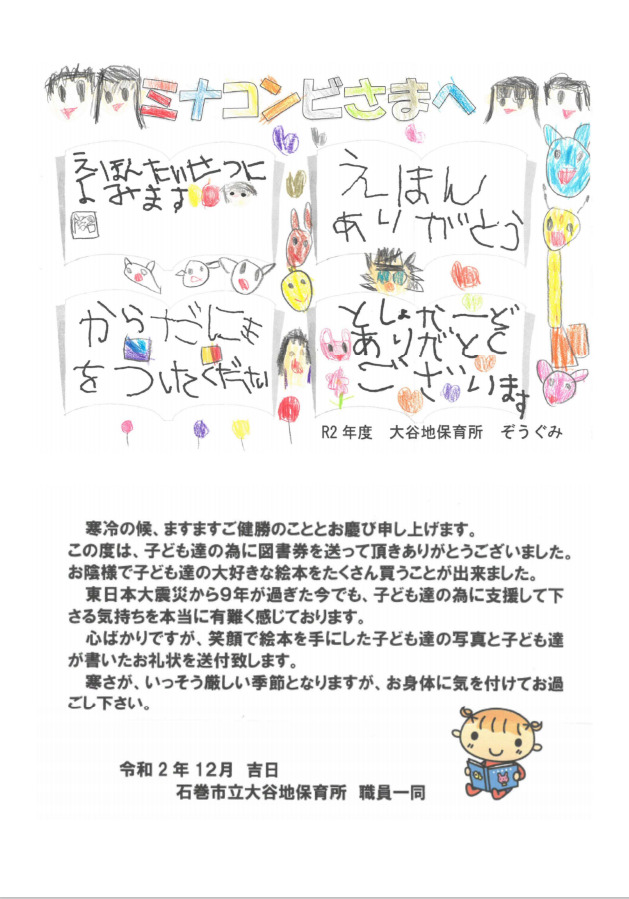 ミナコンビさまへ
えほんたいせつに
よみます
えほん
ありがとう
からだにき
をつけてください
としょかーど
ありがとう
ございます
R2年度　大谷地保育所　ぞうぐみ
寒冷の候、ますますご健勝のこととお慶び申し上げます。
この度は、子ども達の為に図書券を送って頂きありがとうございました。
お陰様で子ども達の大好きな絵本をたくさん買うことが出来ました。
東日本大震災から9年が過ぎた今でも、子ども達の為に支援して下
さる気持ちを本当に有難く感じております。
心ばかりですが、笑顔で絵本を手にした子ども達の写真と子ども達
が書いたお礼状を送付致します。
寒さが、いっそう厳しい季節となりますが、お身体に気を付けてお過
ごし下さい。
令和2年12月　吉日
石巻市立大谷地保育所　職員一同